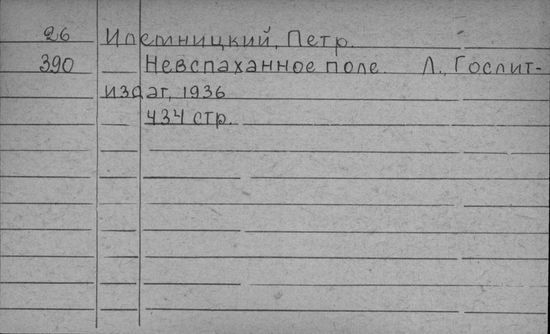 26 Илемницкий, Петр.
390 Невспаханное поле. Л., Гослит-
издат, 1936
434 стр.